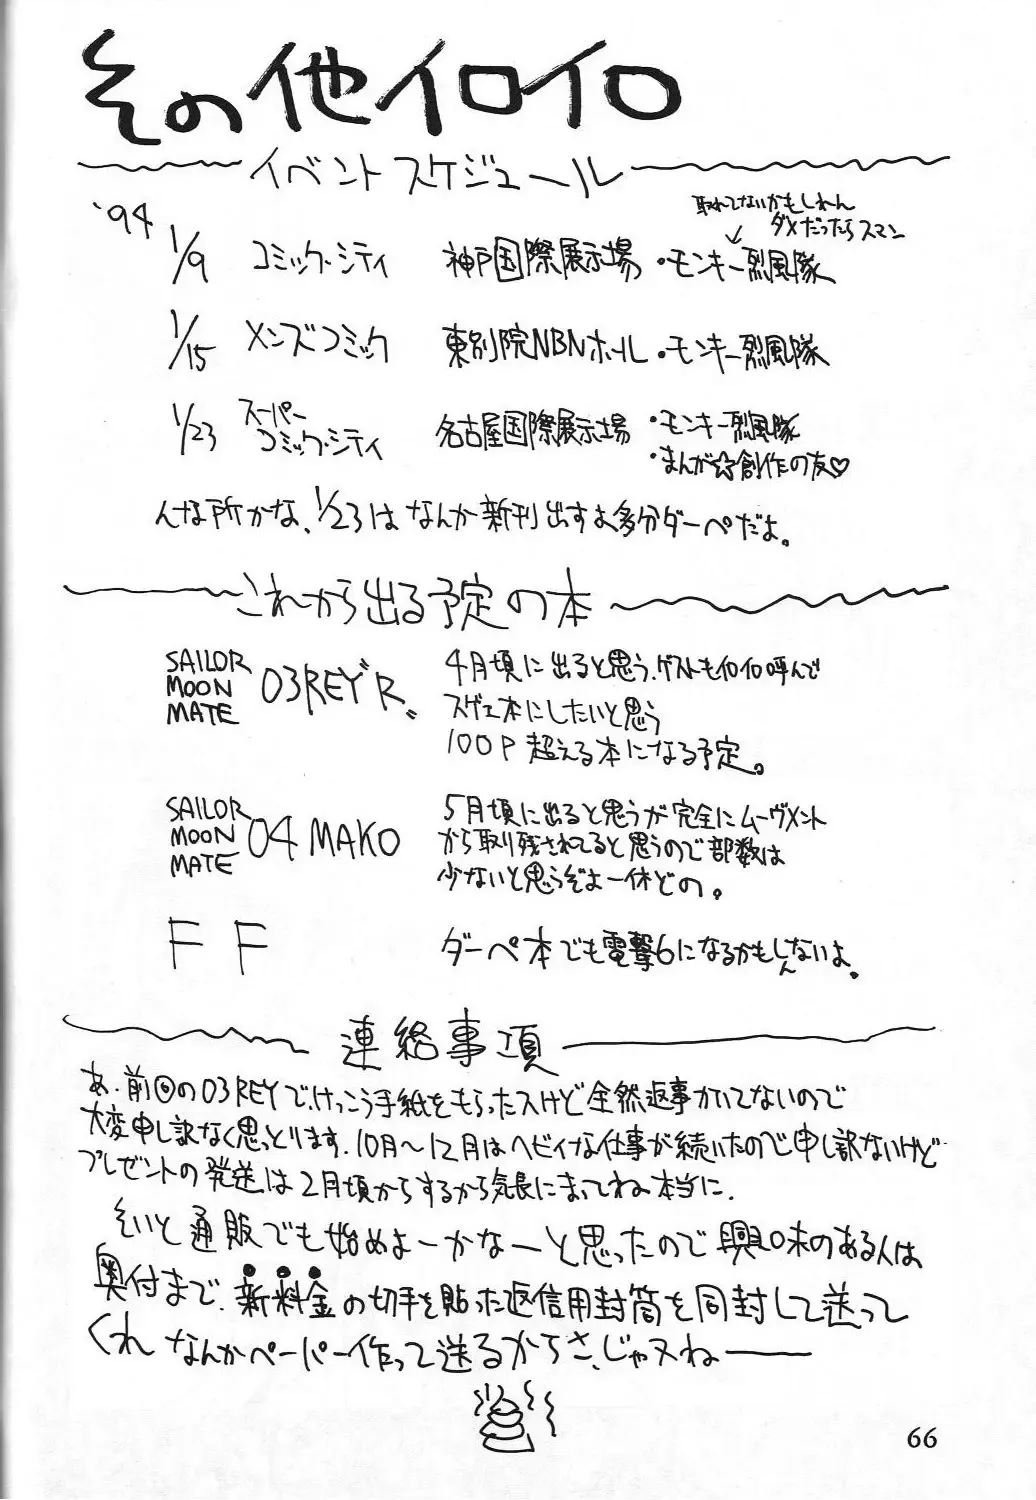 その他イロイロ
イベントスケジュール
'94
取れてないかもしれん
ダメだったらスマン
1/9 コミック・シティ 神戸国際展示場 ・モンキー烈風隊
1/15 メンズコミック 東別院NBNホール ・モンキー烈風隊
1/23 スーパーコミック・シティ 名古屋国際展示場 ・モンキー烈風隊
・まんが☆創作の友♡
んな所かな、1/23はなんか新刊出すよ多分ダーペだよ。
これから出る予定の本
SAILOR MOON MATE 03REY"R" 4月頃に出ると思う、ゲストもイロイロ呼んで
スゲェ本にしたいと思う
100P超える本になる予定。
SAILOR MOON MATE 04 MAKO 5月頃に出ると思うが完全にムーヴメント
から取り残されてると思うので部数は
少ないと思うぞよ一休どの。
FF ダーペ本でも電撃6になるかもしんないよ。
連絡事項
あ、前回の03REYで、けっこう手紙をもらったスけど全然返事かいてないので
大変申し訳なく思っとります、10月〜12月はヘビィな仕事が続いたので申し訳ないけど
プレゼントの発送は2月頃からするから気長にまっててね本当に、
そいと通販でも始めよーかなーと思ったので興味のある人は
奥付まで、新料金の切手を貼った返信用封筒を同封して送って
くれ なんかペーパー作って送るからさ、じゃヌね――
66